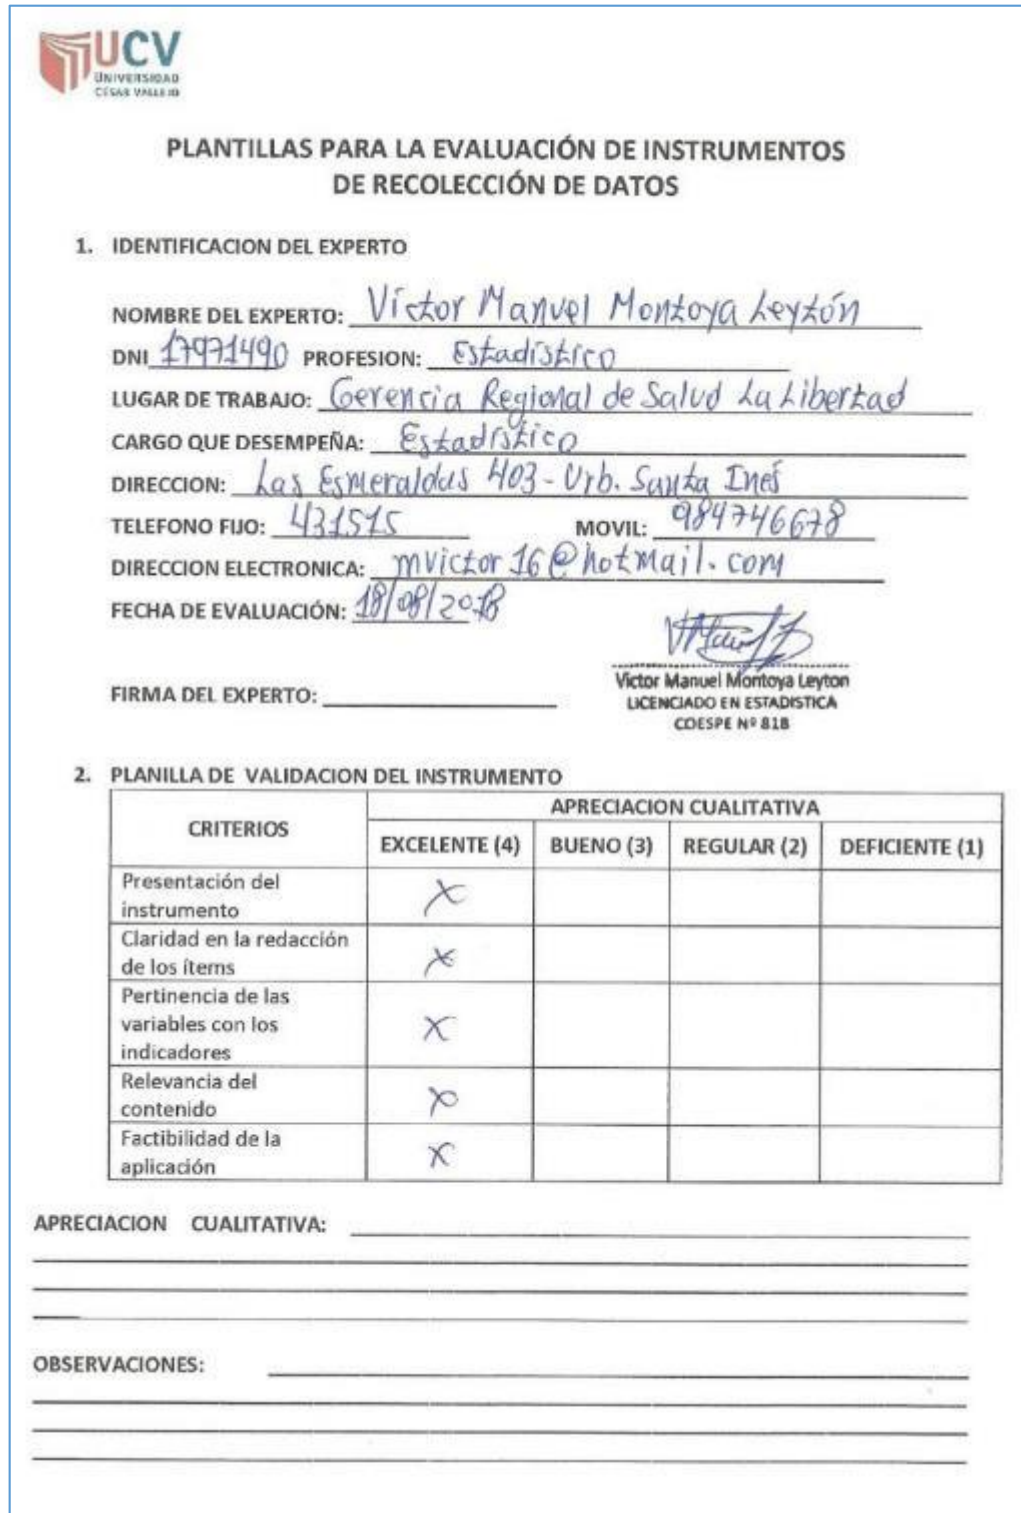 UCV
UNIVERSIDAD
CÉSAR VALLEJO
PLANTILLAS PARA LA EVALUACIÓN DE INSTRUMENTOS
DE RECOLECCIÓN DE DATOS
1. IDENTIFICACION DEL EXPERTO
NOMBRE DEL EXPERTO: Víctor Manuel Montoya Leytón
DNI 17971490 PROFESION: Estadístico
LUGAR DE TRABAJO: Gerencia Regional de Salud La Libertad
CARGO QUE DESEMPEÑA: Estadístico
DIRECCION: Las Esmeraldas 403 - Urb. Santa Inés
TELEFONO FIJO: 431515 MOVIL: 984746678
DIRECCION ELECTRONICA: mvictor16@hotmail.com
FECHA DE EVALUACIÓN: 18/08/2018
FIRMA DEL EXPERTO:
Victor Manuel Montoya Leyton
LICENCIADO EN ESTADISTICA
COESPE Nº 818
2. PLANILLA DE VALIDACION DEL INSTRUMENTO
CRITERIOS
APRECIACION CUALITATIVA
EXCELENTE (4) BUENO (3) REGULAR (2) DEFICIENTE (1)
Presentación del
instrumento X
Claridad en la redacción
de los ítems X
Pertinencia de las
variables con los
indicadores X
Relevancia del
contenido X
Factibilidad de la
aplicación X
APRECIACION CUALITATIVA:
OBSERVACIONES: